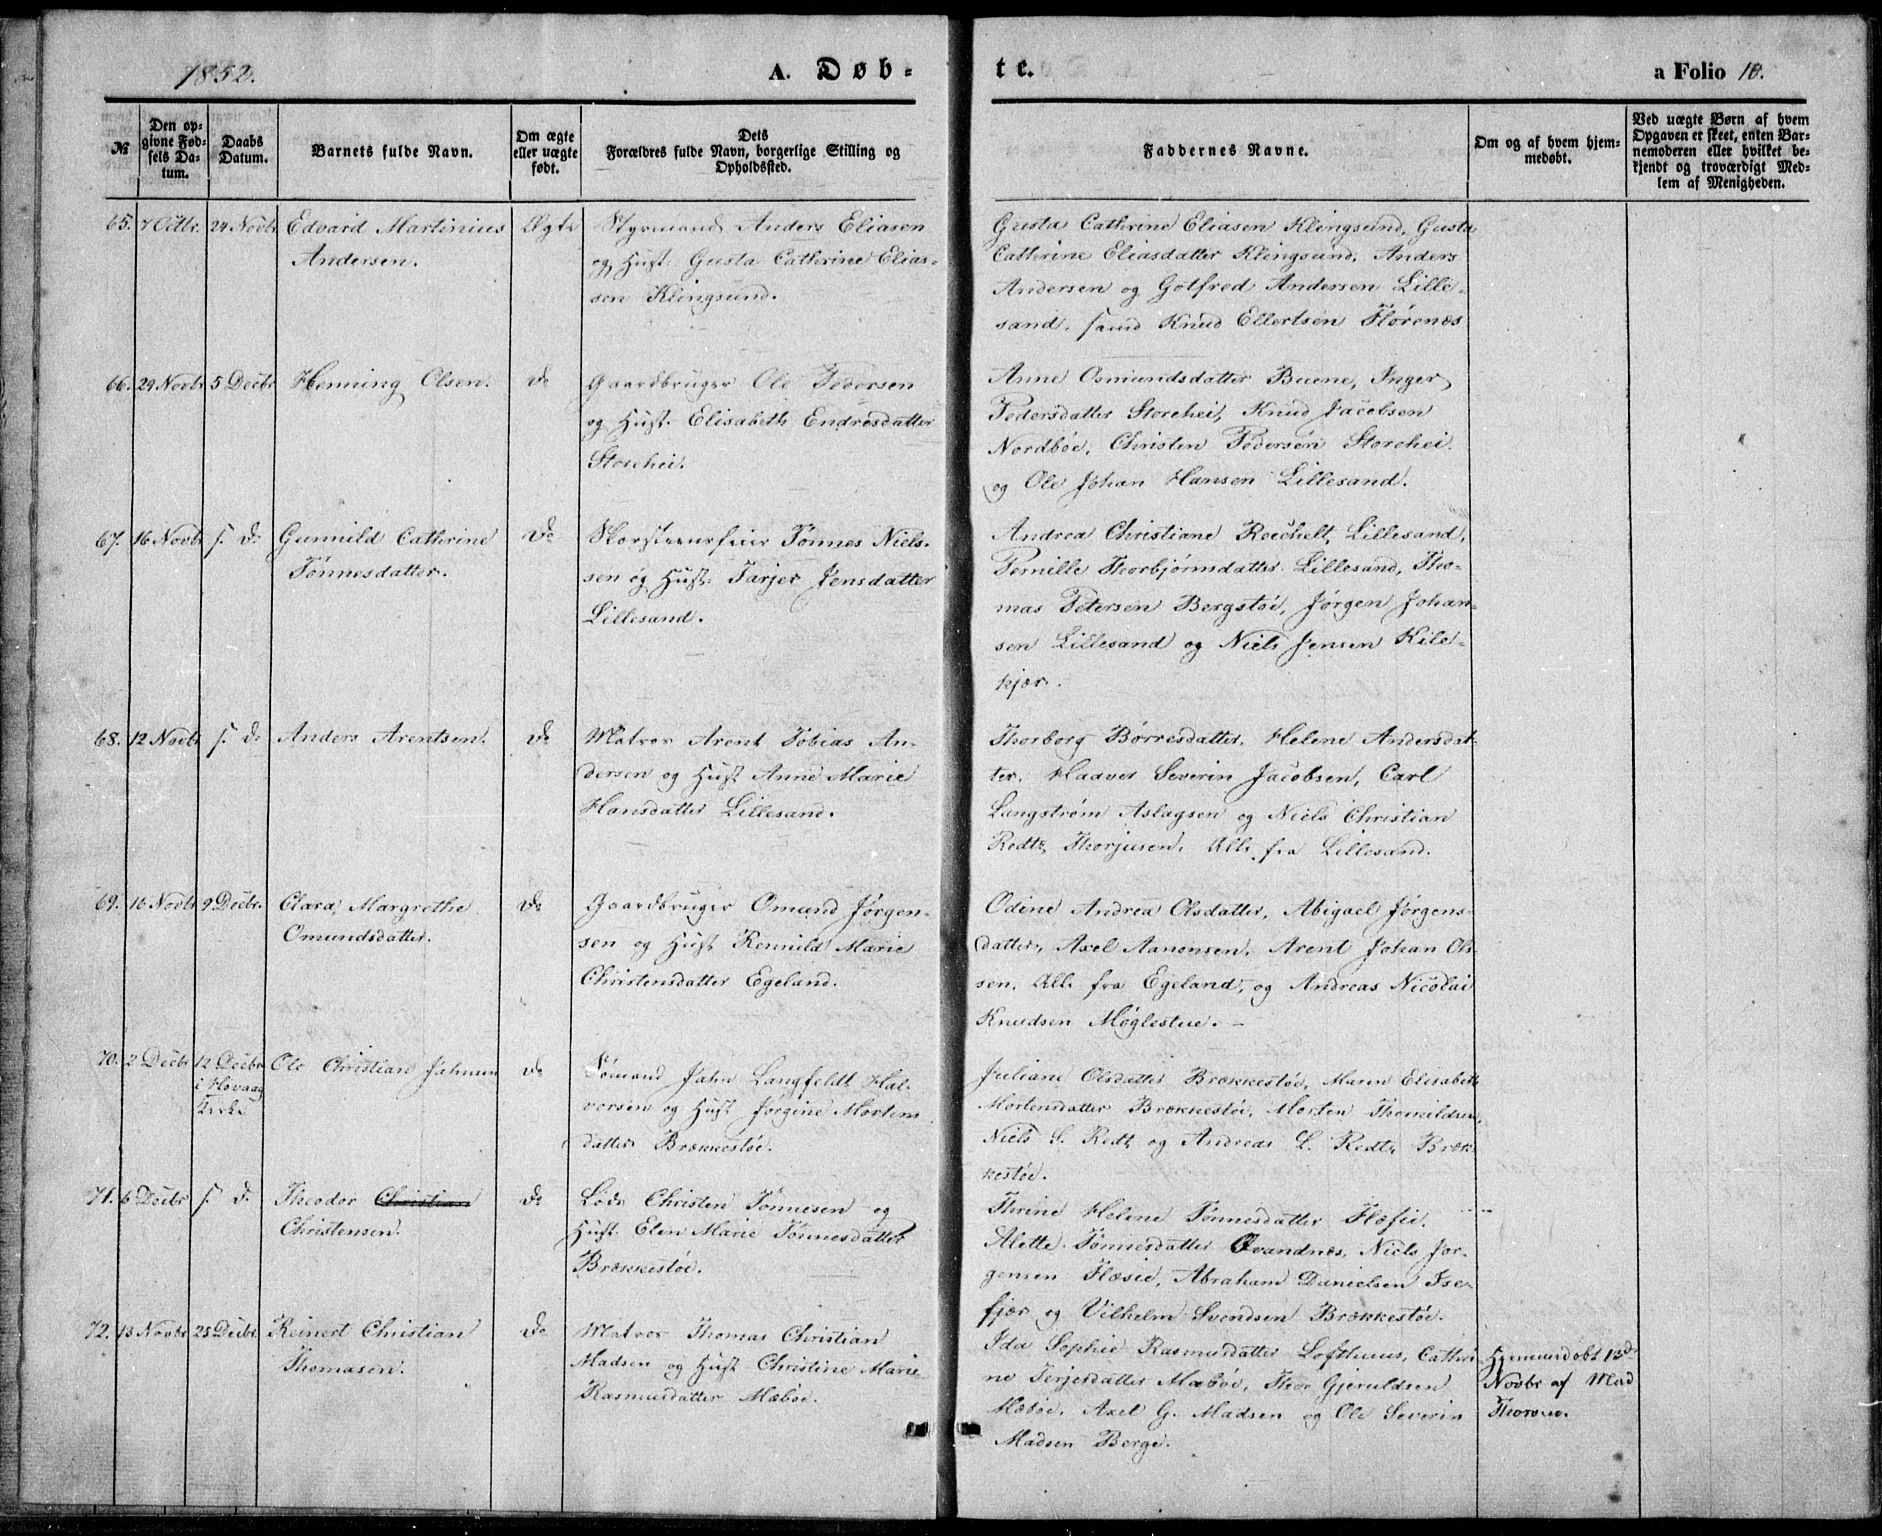 1852.
A. Døb-
te.
a Folio 10.
№
Den op-
givne Fød-
sels Da-
tum.
Daabs
Datum.
Barnets fulde Navn.
Om ægte
eller uægte
født.
Dets
Forældres fulde Navn, borgerlige Stilling og
Opholdssted.
Faddernes Navne.
Om og af hvem hjem-
medøbt.
Ved uægte Børn af hvem
Opgaven er skeet, enten Bar-
nemoderen eller hvilket be-
kjendt og troværdigt Med-
lem af Menigheden.
65. 7 Octbr. 24 Novbr
Edvard Martinius
Andersen.
Ægte
Styrmand Anders Eliasen
og Hust. Gusta Cathrine Elias-
sen Klingsund.
Gusta Cathrine Eliasen Klingsund, Gusta
Cathrine Eliasdatter Klingsund, Anders
Andersen og Gotfred Andersen Lille-
sand, samt Knud Ellertsen Flørenæs
66. 29 Novbr 5 Decbr
Henning Olsen.
Do
Gaardbruger Ole Pedersen
og Hust. Elisabeth Endresdatter
Storehei.
Anne Osmundsdatter Buene, Inger
Pedersdatter Storehei, Knud Jacobsen
Nordbøe, Christen Pedersen Storehei.
og Ole Johan Hansen Lillesand.
67. 16 Novbr s. D.
Gunnild Cathrine
Tønnesdatter.
Do
Skorsteensfeier Tønnes Niels-
sen og Hust. Tarjer Jensdatter
Lillesand.
Andrea Christiane Reichelt, Lillesand,
Pernille Thorbjørnsdatter Lillesand, Tho-
mas Petersen Bergstøe, Jørgen Johan-
sen Lillesand og Niels Jensen Kile-
kjær.
68. 12 Novbr s. D.
Anders Arentsen.
Do
Matros Arent Tobias An-
dersen og Hust Anne Marie
Hansdatter Lillesand.
Thorborg Børresdatter, Helene Andersdat-
ter, Haaver Severin Jacobsen, Carl
Langstrøm Aslagsen og Niels Christian
Redtz Thorjusen, Alle fra Lillesand.
69. 16 Novbr 9 Decbr.
Clara Margrethe
Omundsdatter.
Do
Gaardbruger Omund Jørgen-
sen og Hust Rennild Marie
Christensdatter Egeland.
Odine Andrea Olsdatter, Abigael Jørgens-
datter, Axel Aanonsen, Arent Johan Ol-
sen, Alle fra Egeland, og Andreas Nicolai
Knudsen Møglestue.
70. 2 Decbr 12 Decbr
i Høvaag
Kirke
Ole Christian Jahnsen
Do
Sømand Jahn Langfeldt Hal-
vorsen og Hust Jørgine Mortens
datter Brækkestøe.
Juliane Olsdatter Brækkestøe, Maren Elisabeth
Mortensdatter Brækkestøe, Morten Thomildsen,
Niels S. Redtz og Andreas L. Redtz Bræk-
kestøe.
71. 6 Decbr s. D.
Theodor Christian
Christensen.
Do
Lods Christen Tønnesen og
Hust. Elen Marie Tønnesdatter
Brækkestøe.
Thrine Helene Tønnesdatter Flæsie,
Alette Tønnesdatter Qvandnes, Niels Jør-
gensen Flæsie, Abraham Danielsen Ise-
fjær og Vilhelm Svendsen Brækkestøe.
72. 13 Novbr 25 Decbr.
Reinert Christian
Thomasen.
Do
Matros Thomas Christian
Madsen og Hust Christine Marie
Rasmusdatter Mæbøe.
Ida Sophie Rasmusdatter Lofthuus, Cathri-
ne Terjesdatter Mæbøe, Thor Gjeruldsen
Mæbøe, Axel G. Madsen og Ole Severin
Madsen Berge.
Hjemmedøbt 13de
Novbr af Mad